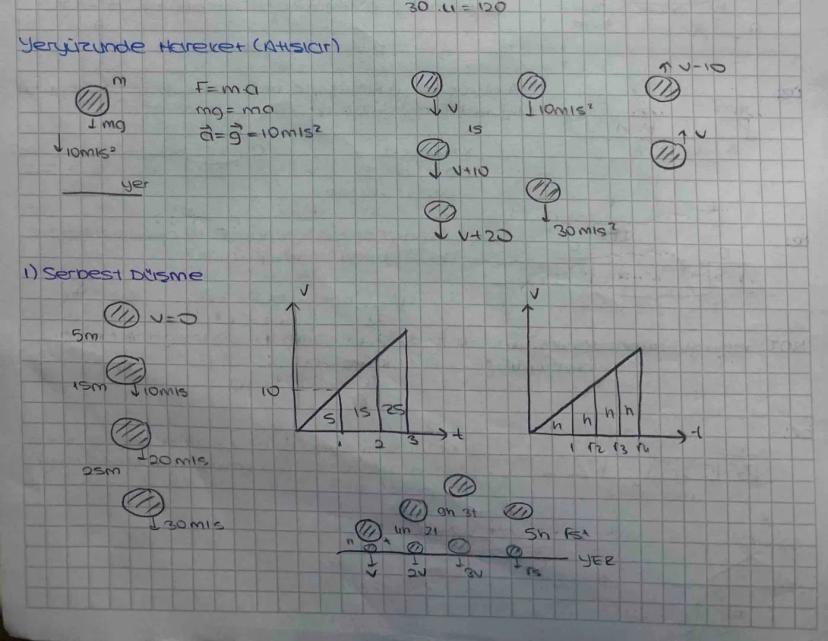 30.4=120
Yeryüzünde Hareket (Atışlar)
m
mg
10m/s²
yer
F=ma
mg=ma
a⃗=g⃗=10m/s²
v
1s
v+10
v+20
10m/s²
30m/s²
v-10
v
1) Serbest Düşme
v=0
5m
10m/s
15m
20m/s
25m
30m/s
v
10
5 15 25
1 2 3 t
v
h h h h
1 √2 √3 √4 t
h t
4h 2t
9h 3t
5h √5t
v 2v 3v √5
YER